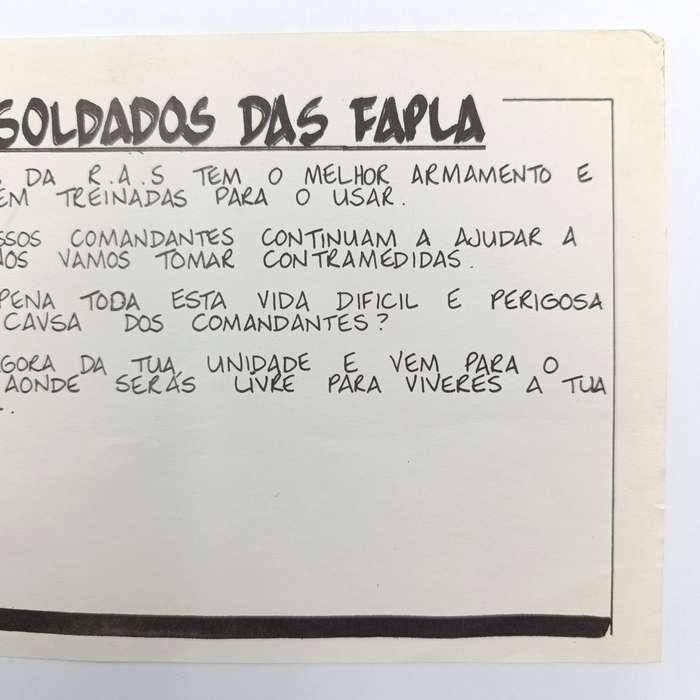 SOLDADOS DAS FAPLA
DA R.A.S TEM O MELHOR ARMAMENTO E
EM TREINADAS PARA O USAR.
SSOS COMANDANTES CONTINUAM A AJUDAR A
VAMOS TOMAR CONTRAMEDIDAS.
PENA TODA ESTA VIDA DIFICIL E PERIGOSA
CAUSA DOS COMANDANTES?
GORA DA TUA UNIDADE E VEM PARA O
AONDE SERÁS LIVRE PARA VIVERES A TUA